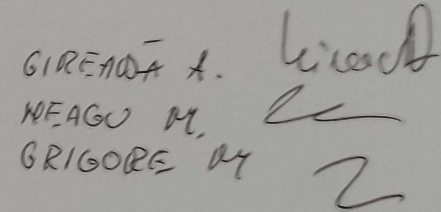 GIREADĂ A.
NEAGU M.
GRIGORE M